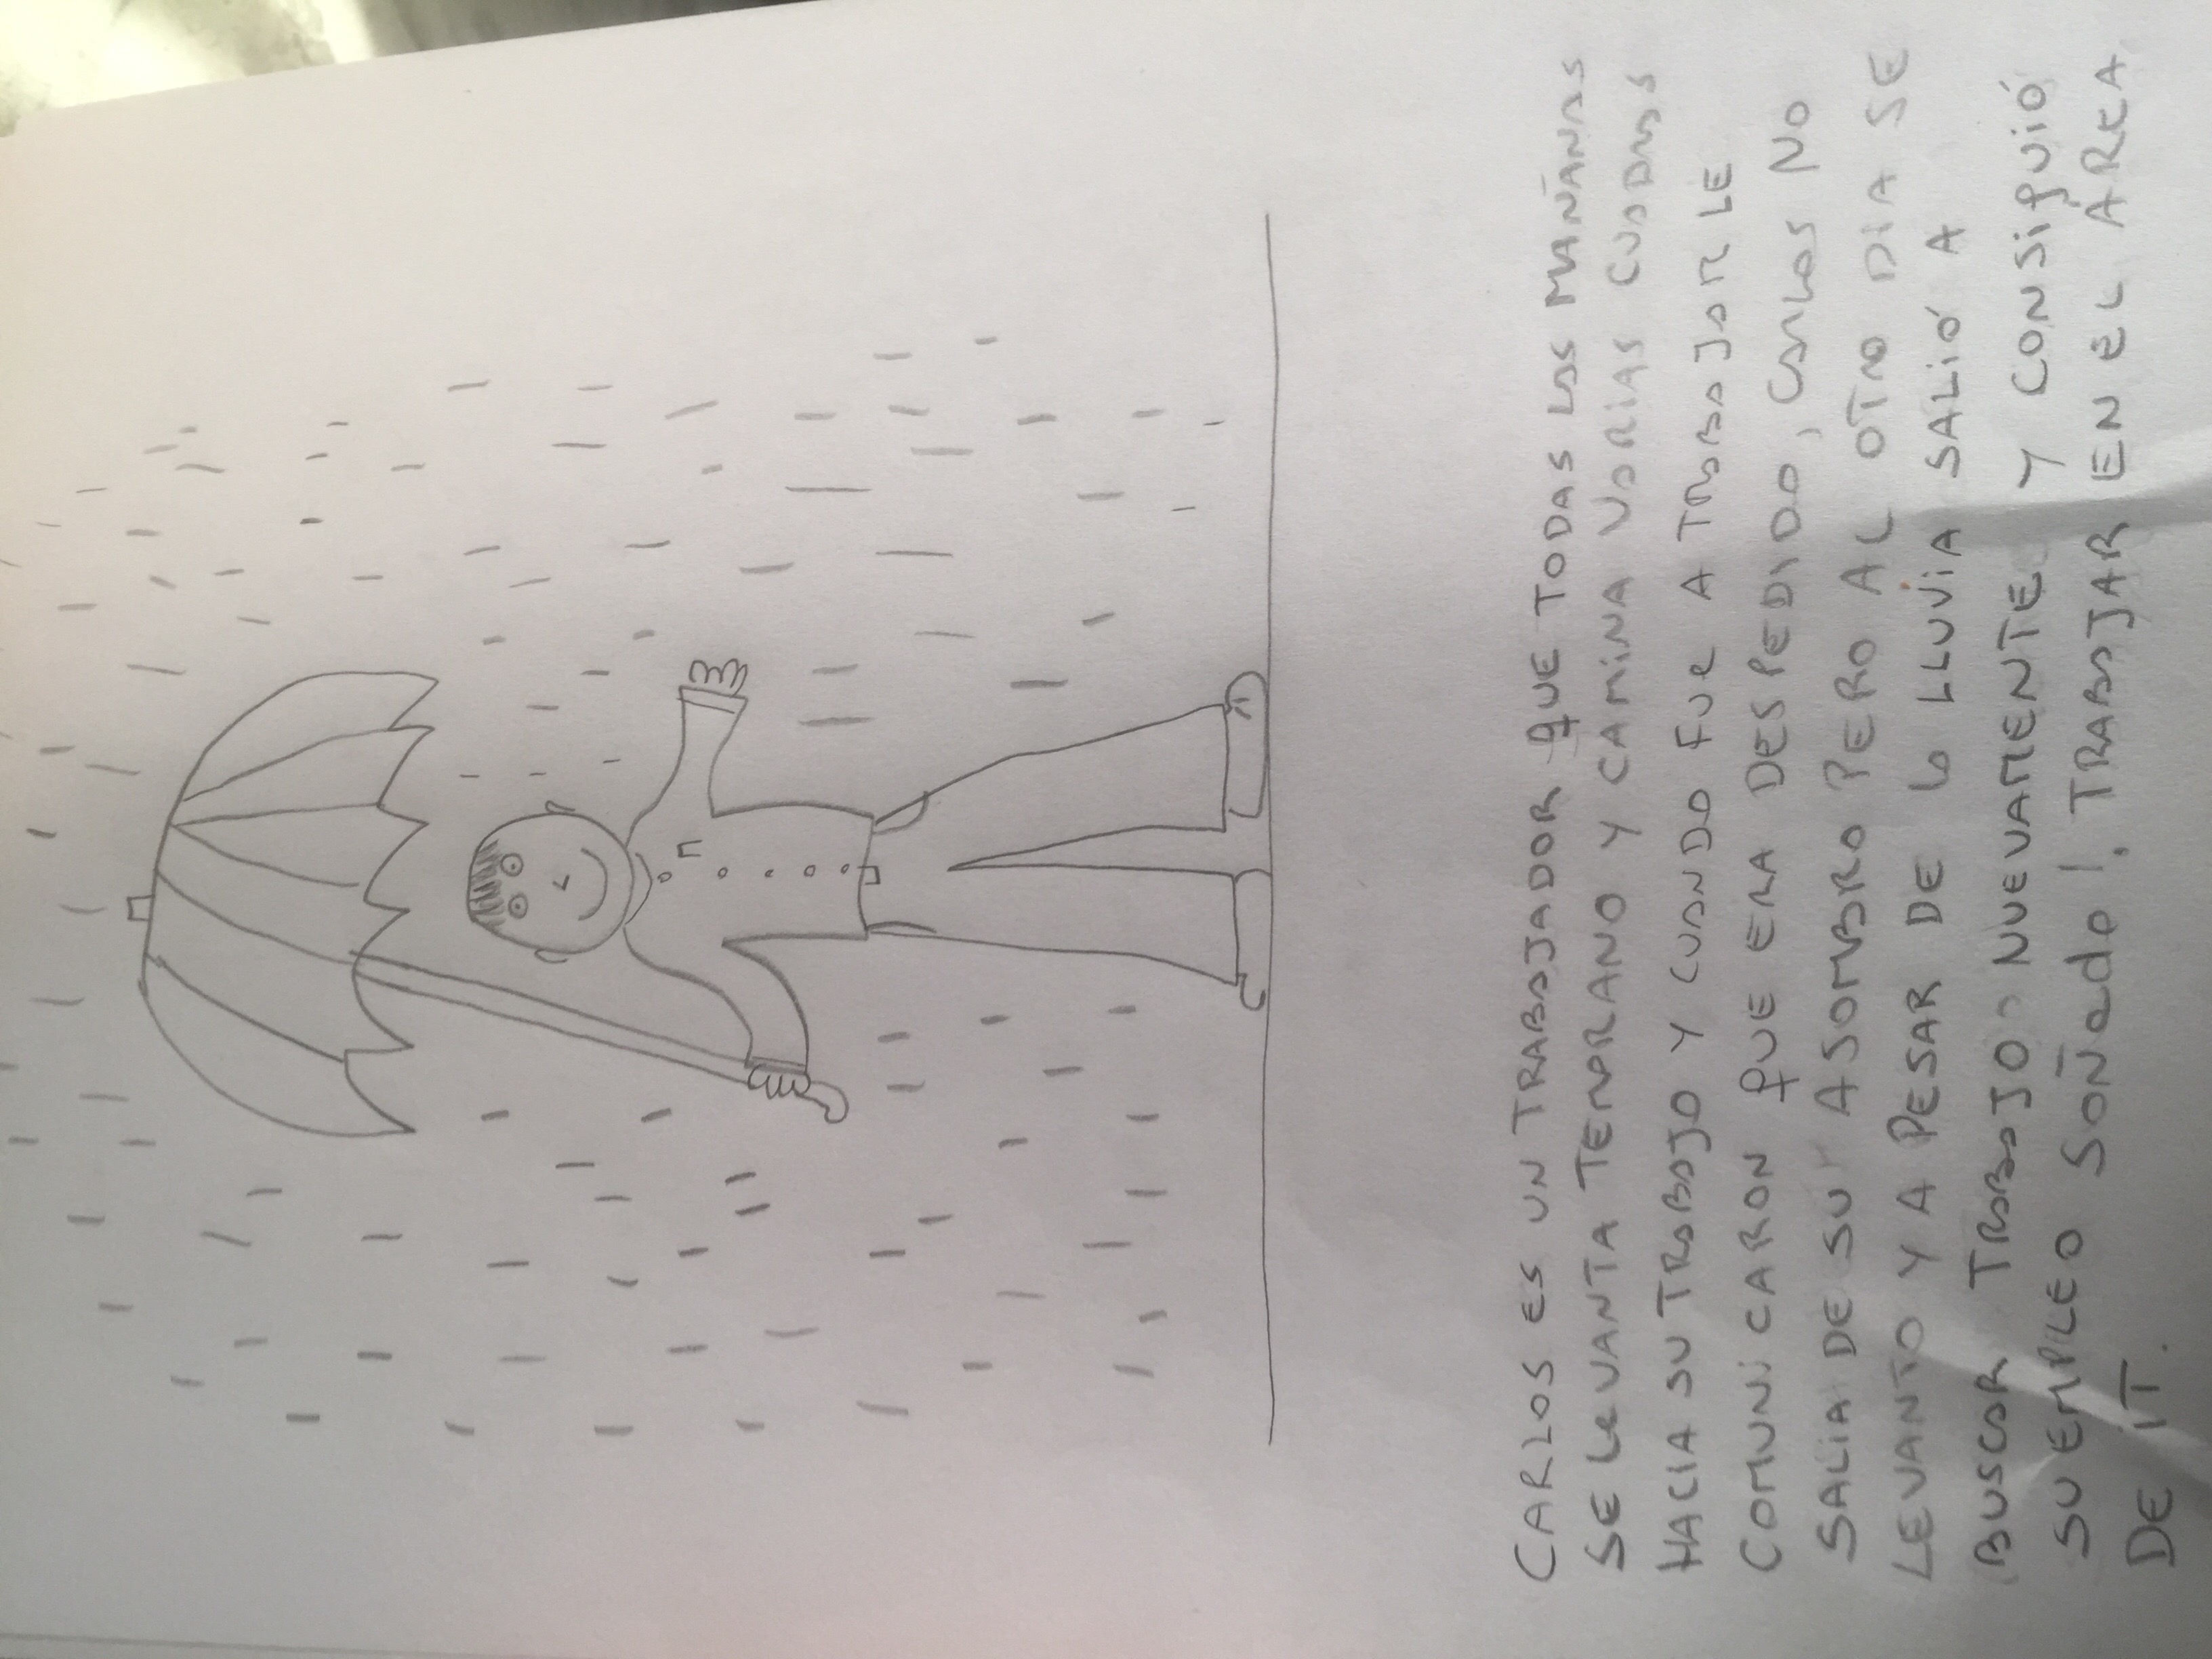 CARLOS ES UN TRABAJADOR QUE TODAS LAS MAÑANAS
SE LEVANTA TEMPRANO Y CAMINA VARIAS CUADRAS
HACIA SU TRABAJO Y CUANDO FUE A TRABAJAR LE
COMUNICARON QUE ERA DESPEDIDO, CARLOS NO
SALIA DE SU ASOMBRO PERO AL OTRO DIA SE
LEVANTO Y A PESAR DE LA LLUVIA SALIÓ A
BUSCAR TRABAJO NUEVAMENTE Y CONSIGUIÓ
SU EMPLEO SOÑADO!. TRABAJAR EN EL ÁREA
DE IT.